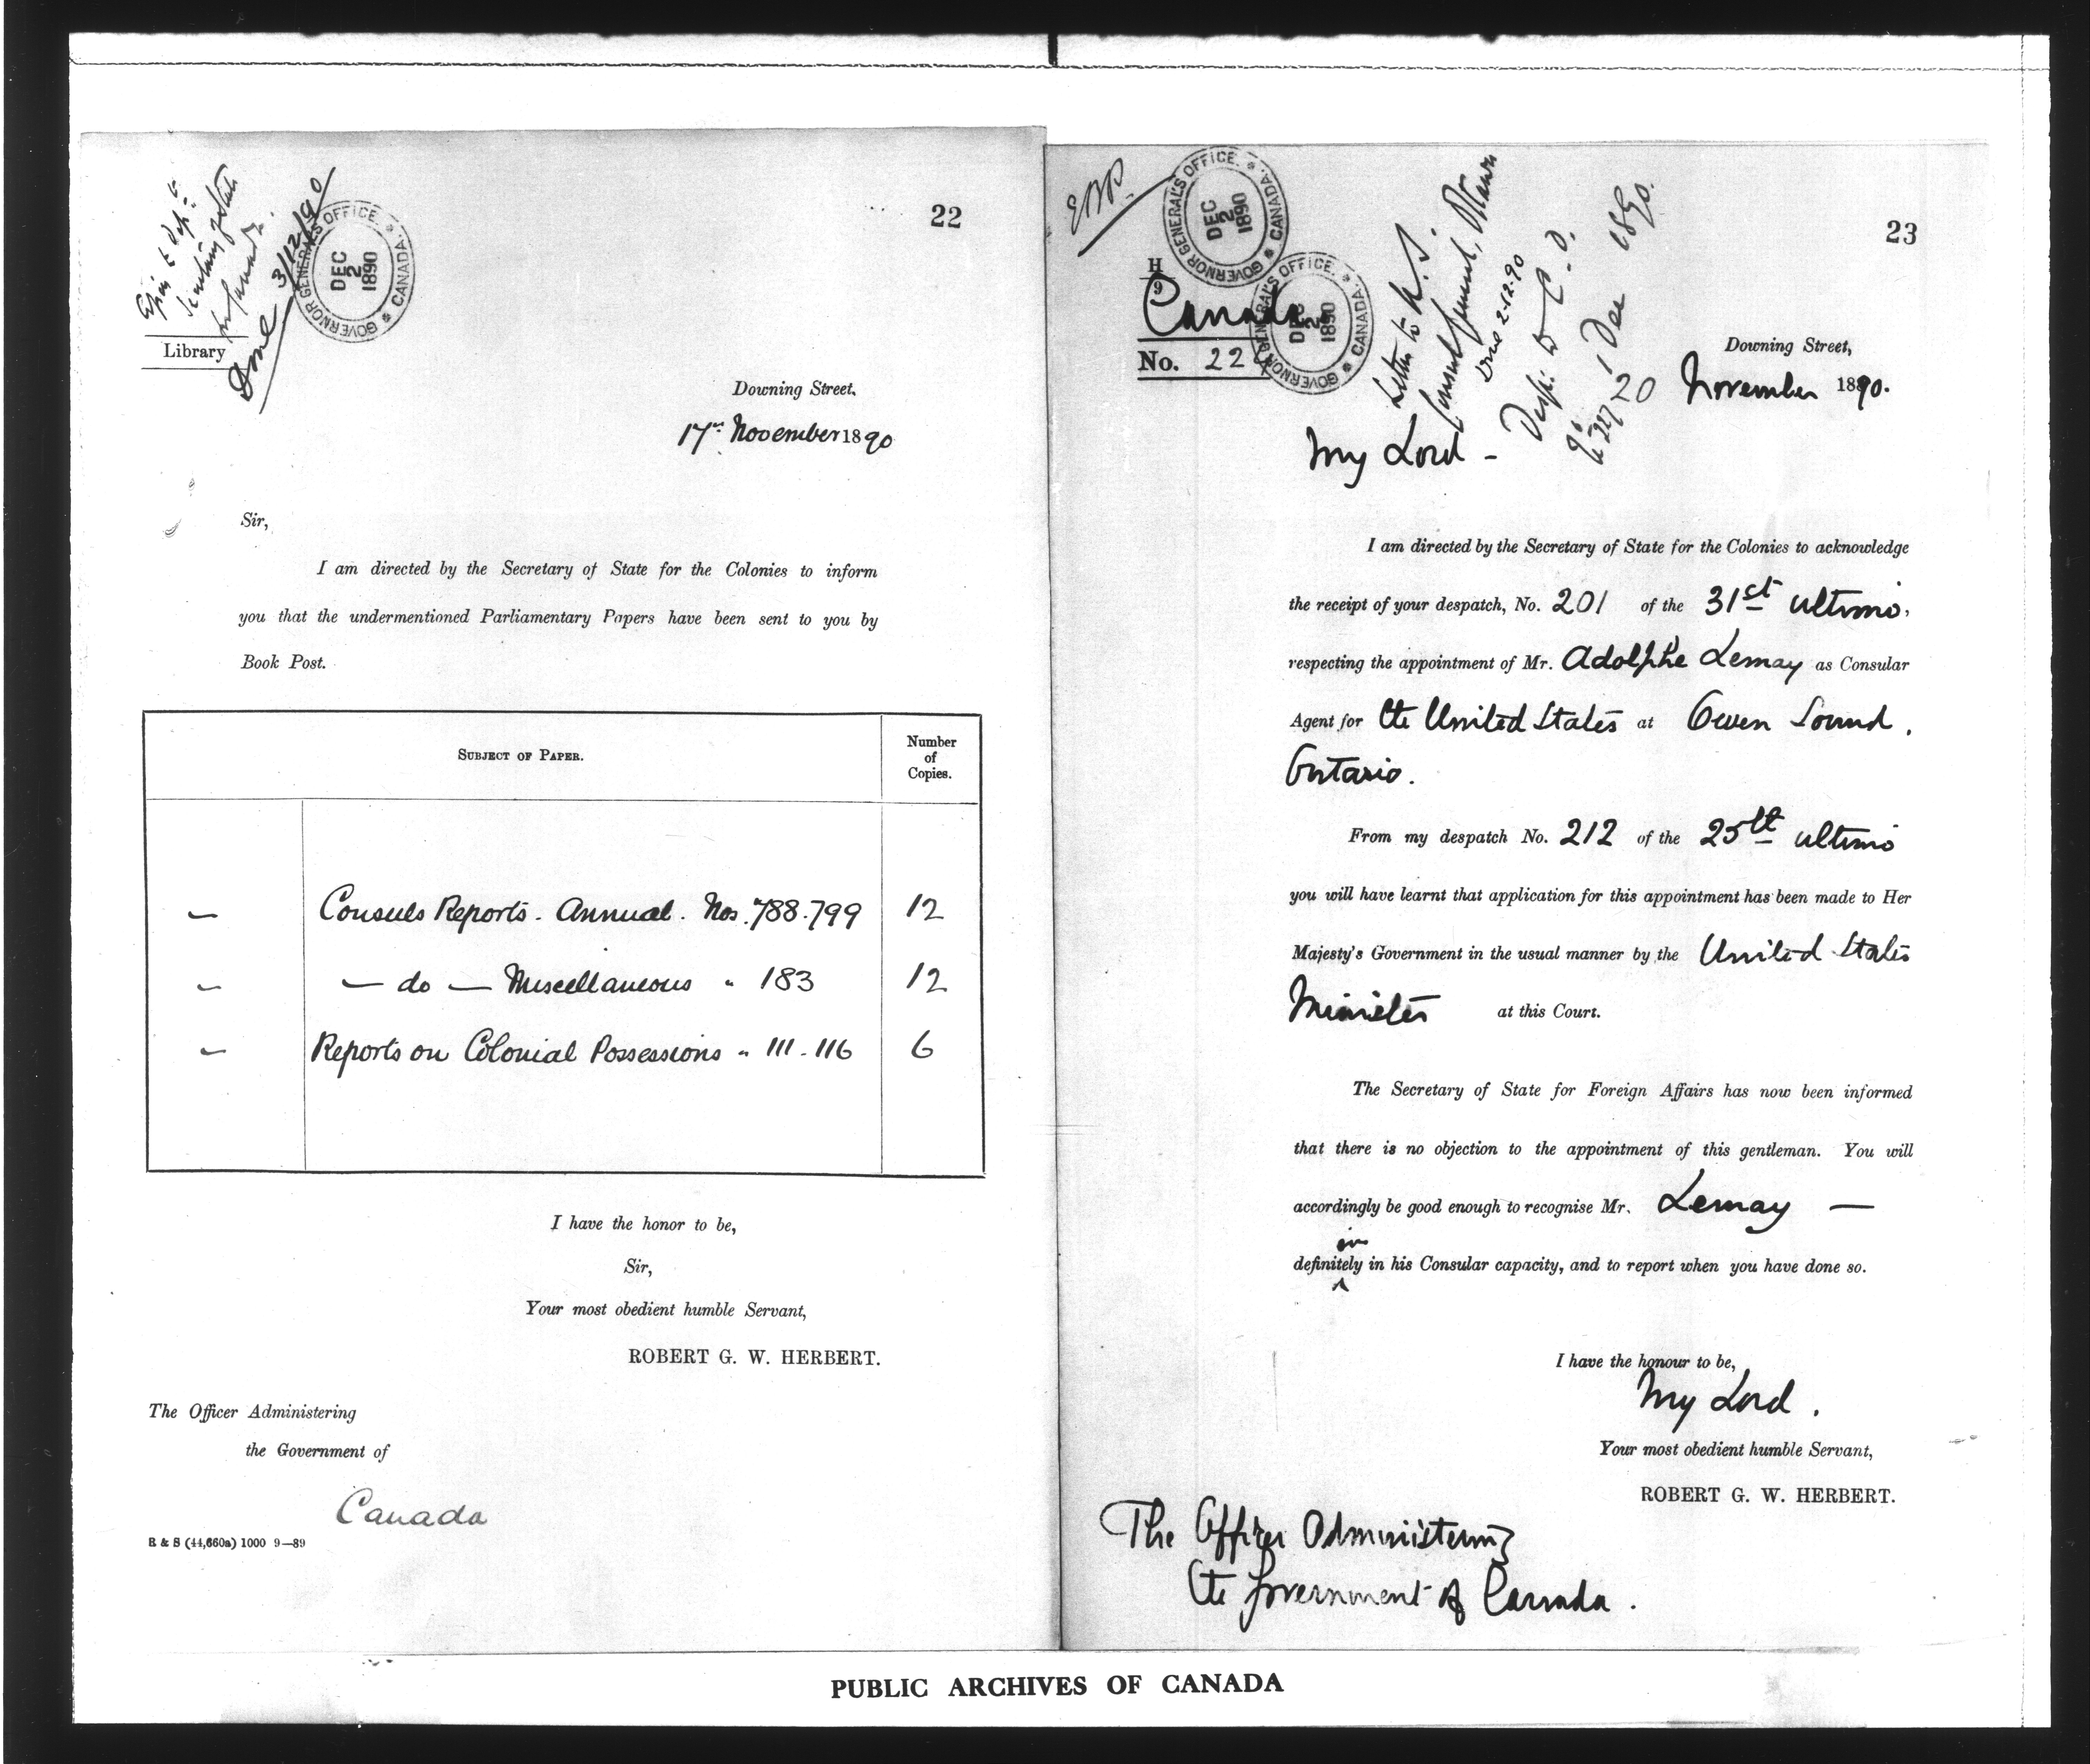 22
Done 3/12/90
GOVERNOR GENERAL'S OFFICE. CANADA.
DEC
2
1890
Library
Downing Street.
17th November 1890
Sir,
I am directed by the Secretary of State for the Colonies to inform
you that the undermentioned Parliamentary Papers have been sent to you by
Book Post.
SUBJECT OF PAPER.
Number
of
Copies.
Consuls Reports - Annual. Nos. 788-799 12
— do — Miscellaneous " 183 12
Reports on Colonial Possessions " 111-116 6
I have the honor to be,
Sir,
Your most obedient humble Servant,
ROBERT G. W. HERBERT.
The Officer Administering
the Government of
Canada
R & S (44,660a) 1000 9—89
23
GOVERNOR GENERAL'S OFFICE. CANADA.
DEC
2
1890
GOVERNOR GENERAL'S OFFICE. CANADA.
DEC
2
1890
H
9
Canada
No. 22
Letter to U.S.
Consul General, Ottawa
Done 2.12.90
Desp. to C.O.
1 Dec 1890.
Downing Street,
20 November 1890.
My Lord -
I am directed by the Secretary of State for the Colonies to acknowledge
the receipt of your despatch, No. 201 of the 31st ultimo,
respecting the appointment of Mr. Adolphe Lemay as Consular
Agent for the United States at Owen Sound,
Ontario.
From my despatch No. 212 of the 25th ultimo
you will have learnt that application for this appointment has been made to Her
Majesty's Government in the usual manner by the United States
Minister at this Court.
The Secretary of State for Foreign Affairs has now been informed
that there is no objection to the appointment of this gentleman. You will
accordingly be good enough to recognise Mr. Lemay —
definitely in his Consular capacity, and to report when you have done so.
I have the honour to be,
My Lord.
Your most obedient humble Servant,
ROBERT G. W. HERBERT.
The Officer Administering
the Government of Canada.
PUBLIC ARCHIVES OF CANADA